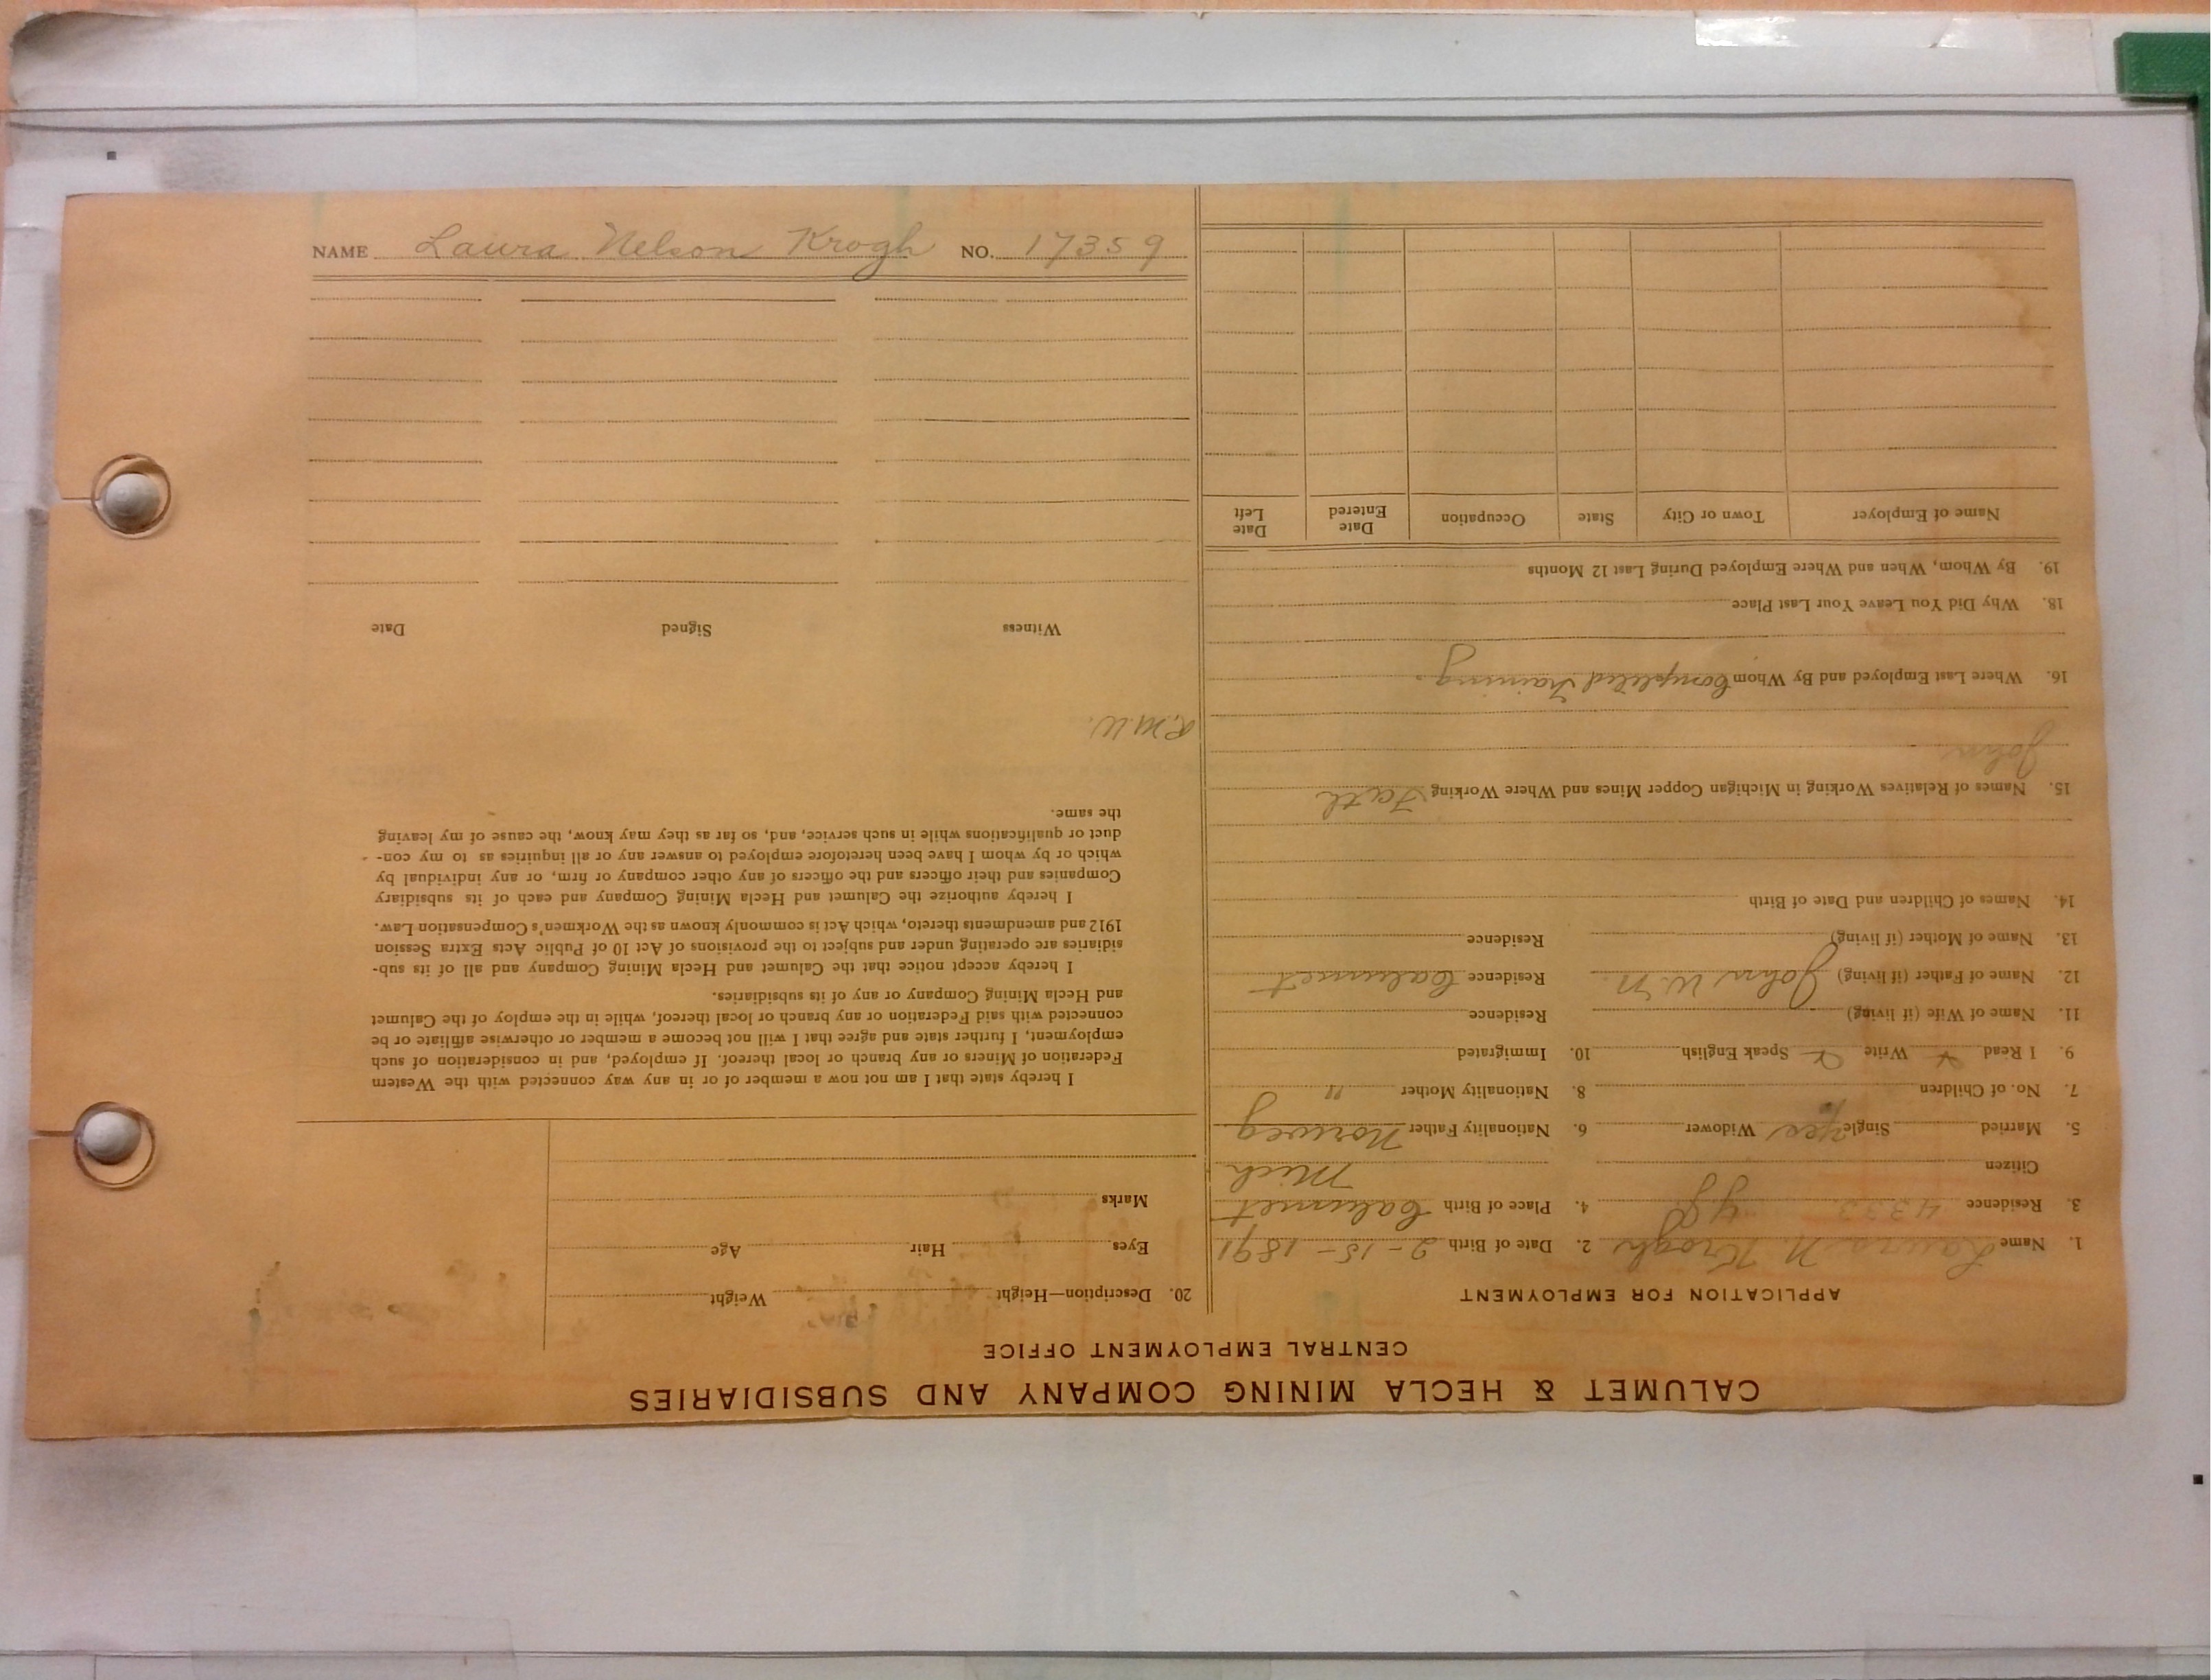 CALUMET & HECLA MINING COMPANY AND SUBSIDIARIES
CENTRAL EMPLOYMENT OFFICE
APPLICATION FOR EMPLOYMENT
1. Name Laura N. Krogh 2. Date of Birth 2-15-1891
3. Residence 4333 4. Place of Birth Calumet
Citizen Mich
5. Married Single Yes Widower 6. Nationality Father Norweg
7. No. of Children 8. Nationality Mother "
9. I Read Write Speak English 10. Immigrated
11. Name of Wife (if living) Residence
12. Name of Father (if living) John W. Residence Calumet
13. Name of Mother (if living) Residence
14. Names of Children and Date of Birth
15. Names of Relatives Working in Michigan Copper Mines and Where Working Fath
John
16. Where Last Employed and By Whom Completed training.
18. Why Did You Leave Your Last Place
19. By Whom, When and Where Employed During Last 12 Months
Name of Employer Town or City State Occupation Date Entered Date Left
20. Description—Height Weight
Eyes Hair Age
Marks
I hereby state that I am not now a member of or in any way connected with the Western
Federation of Miners or any branch or local thereof. If employed, and in consideration of such
employment, I further state and agree that I will not become a member or otherwise affiliate or be
connected with said Federation or any branch or local thereof, while in the employ of the Calumet
and Hecla Mining Company or any of its subsidiaries.
I hereby accept notice that the Calumet and Hecla Mining Company and all of its sub-
sidiaries are operating under and subject to the provisions of Act 10 of Public Acts Extra Session
1912 and amendments thereto, which Act is commonly known as the Workmen's Compensation Law.
I hereby authorize the Calumet and Hecla Mining Company and each of its subsidiary
Companies and their officers and the officers of any other company or firm, or any individual by
which or by whom I have been heretofore employed to answer any or all inquiries as to my con-
duct or qualifications while in such service, and, so far as they may know, the cause of my leaving
the same.
R.M.W.
Witness Signed Date
NAME Laura Nelson Krogh NO. 17359